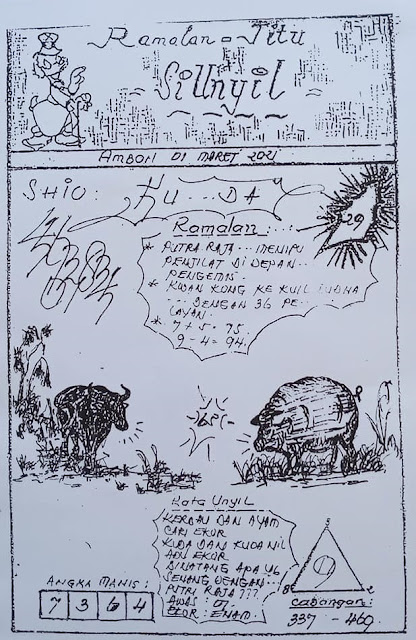 Ramalan = Jitu
SiUnyil
AMBON 01 MARET 2021
SHIO: KU...DA
29
Ramalan:
* PUTRA RAJA... MENIPU
PENJILAT DI DEPAN..
PENGEMIS.
* KWAN KONG KE KUIL BUDHA
... DENGAN 36 PE-
LAYAN.
* 7 + 5 = 75.
9 - 4 = 94.
Kata Unyil
KERBAU DAN AYAM
CARI EKOR
KUDA DAN KUDA NIL
ADU EKOR
BINATANG APA YG
SENANG DENGAN...
PUTRI RAJA???
AWAS: 07.
EKOR: ENAM.
ANGKA MANIS:
7 3 6 4
9
8
2
Cabangan:
337 - 460